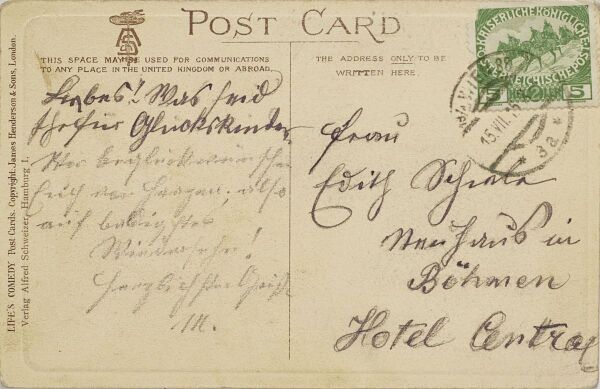 POST CARD
THIS SPACE MAY BE USED FOR COMMUNICATIONS
TO ANY PLACE IN THE UNITED KINGDOM OR ABROAD.
THE ADDRESS ONLY TO BE
WRITTEN HERE.
LIFE'S COMEDY Post Cards. Copyright. James Henderson & Sons, London.
Verlag Alfred Schweizer, Hamburg I.
Liebes! Was seid
Ihr für Glückskinder
Wir beglückwünschen
Euch vor also
auf baldigstes
Wiedersehn!
Herzlichste Grüße
M.
Frau
Edith Schiele
Neuhaus in
Böhmen
Hotel Central
KAISERLICHE KÖNIGLICHE
ÖSTERREICHISCHE POST
5 HELLER 5
15.VII.15
3a